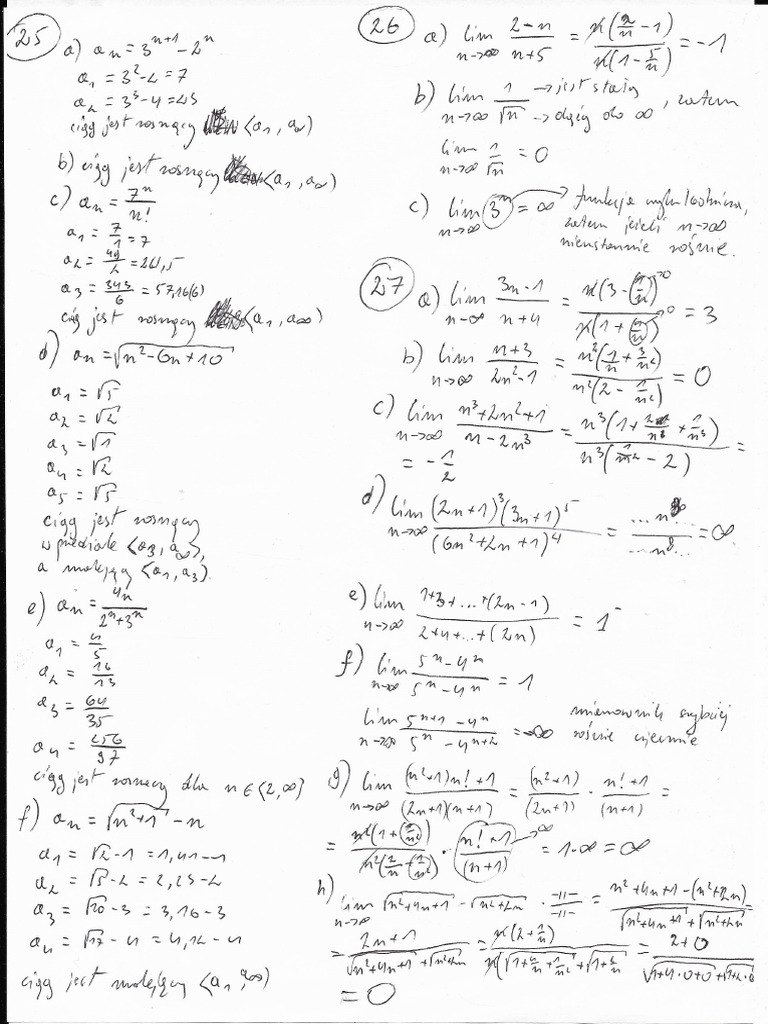 25
a) aₙ = 3ⁿ⁺¹ - 2ⁿ
a₁ = 3² - 2 = 7
a₂ = 3³ - 4 = 23
ciąg jest rosnący ⟨a₁, a∞)
b) ciąg jest rosnący ⟨a₁, a∞)
c) aₙ = 7ⁿ/n!
a₁ = 7/1 = 7
a₂ = 49/2 = 24,5
a₃ = 343/6 = 57,16(6)
ciąg jest rosnący ⟨a₁, a∞)
d) aₙ = √(n² - 6n + 10)
a₁ = √5
a₂ = √2
a₃ = √1
a₄ = √2
a₅ = √5
ciąg jest rosnący
w przedziale ⟨a₃, a∞),
a malejący ⟨a₁, a₃⟩.
e) aₙ = 4ⁿ/(2ⁿ+3ⁿ)
a₁ = 4/5
a₂ = 16/13
a₃ = 64/35
a₄ = 256/97
ciąg jest rosnący dla n ∈ ⟨2, ∞)
f) aₙ = √(n²+1) - n
a₁ = √2 - 1 = 1,41 - 1
a₂ = √5 - 2 = 2,23 - 2
a₃ = √10 - 3 = 3,16 - 3
a₄ = √17 - 4 = 4,12 - 4
ciąg jest malejący ⟨a₁, a∞)
26
a) lim n→∞ (2-n)/(n+5) = n(2/n - 1)/n(1 - 5/n) = -1
b) lim n→∞ 1/√n → jest stałą → dąży do ∞, zatem
lim n→∞ 1/√n = 0
c) lim n→∞ 3ⁿ = ∞ → funkcja wykładnicza,
zatem jeżeli n→∞
nieustannie rośnie.
27
a) lim n→∞ (3n-1)/(n+4) = n(3 - (1/n)→0)/n(1 + (4/n)→0) = 3
b) lim n→∞ (n+3)/(2n²-1) = n²(1/n + 3/n²)/n²(2 - 1/n²) = 0
c) lim n→∞ (n³+2n²+1)/(n-2n³) = n³(1 + 2/n + 1/n³)/n³(1/n² - 2) =
= -1/2
d) lim n→∞ (2n+1)³(3n+1)⁵/(6n²+2n+1)⁴ = ...n⁸.../...n⁸... = ∞
e) lim n→∞ (1+3+...+(2n-1))/(2+4+...+(2n)) = 1⁻
f) lim n→∞ (5ⁿ-4ⁿ)/(5ⁿ-4ⁿ) = 1
lim n→∞ (5ⁿ⁺¹-4ⁿ)/(5ⁿ-4ⁿ⁺²) = -∞ mianownik szybciej
rośnie ujemnie
g) lim n→∞ ((n²+1)n!+1)/((2n+1)(n+1)) = (n²+1)/(2n+1) · (n!+1)/(n+1) =
= n²(1+(1/n²))/n²(2/n + 1/n²) · (n!+1)/(n+1) →∞ = 1·∞ = ∞
h) lim n→∞ √(n²+4n+1) - √(n²+2n) · -11-/-11- = (n²+4n+1-(n²+2n))/(√(n²+4n+1)+√(n²+2n))
= (2n+1)/(√(n²+4n+1)+√(n²+2n)) = n(2+1/n)/n(√(1+4/n+1/n²)+√(1+2/n)) = (2+0)/(√(1+4·0+0)+√(1+2·0))
= 0